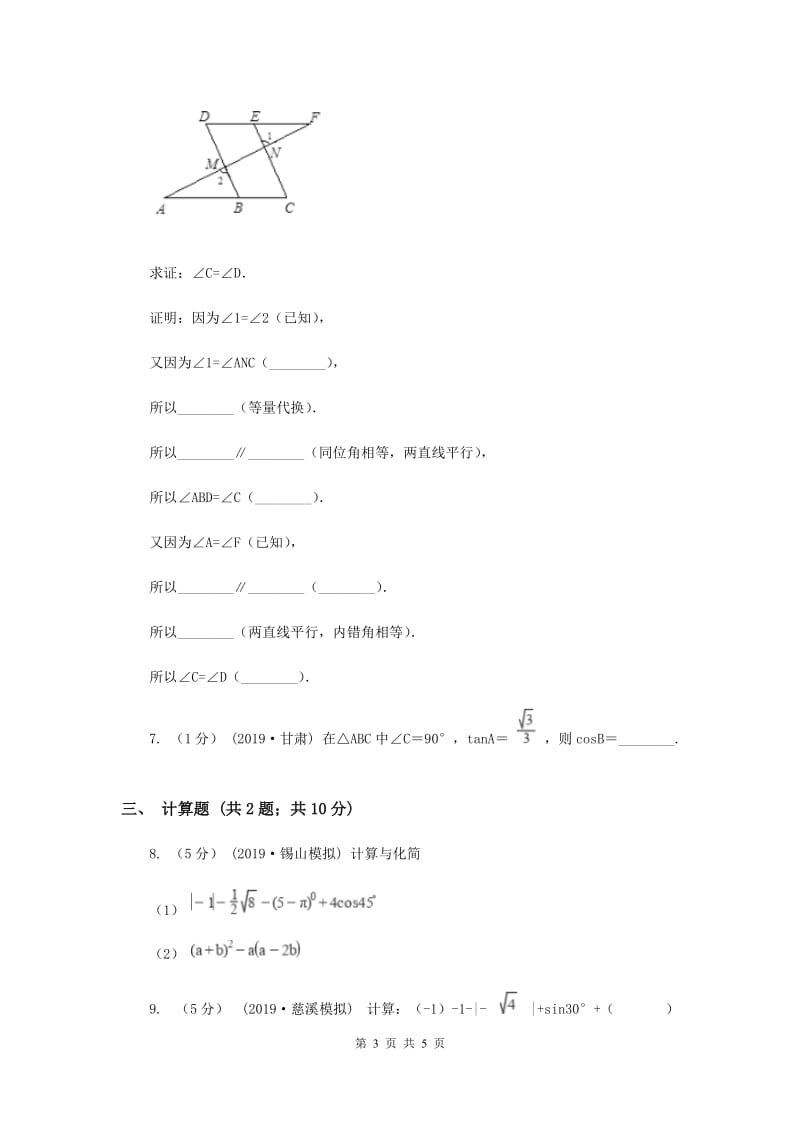 D E F
1
N
M
2
A B C
求证：∠C=∠D．
证明：因为∠1=∠2（已知），
又因为∠1=∠ANC（________），
所以________（等量代换）．
所以________∥________（同位角相等，两直线平行），
所以∠ABD=∠C（________）．
又因为∠A=∠F（已知），
所以________∥________（________）．
所以________（两直线平行，内错角相等）．
所以∠C=∠D（________）．
7. （1分） (2019·甘肃) 在△ABC中∠C＝90°，tanA＝ √3/3 ，则cosB＝________.
三、 计算题 (共2题；共10分)
8. （5分） (2019·锡山模拟) 计算与化简
（1） |−1|−½√8−(5−π)⁰+4cos45°
（2） (a+b)²−a(a−2b)
9. （5分） (2019·慈溪模拟) 计算：（-1）-1-|- √4 |+sin30°+（ ）
第 3 页 共 5 页